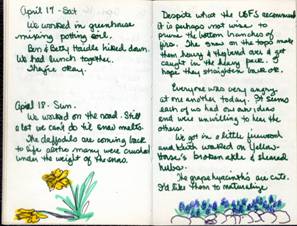 April 17 - Sat
We worked in greenhouse
mixing potting soil.
Ben & Betty Hinkle hiked down.
We had lunch together.
April 18 - Sun.
We worked on the road. Still
a lot we can't do til snow melts.
The daffodils are coming back
to life after many were crushed
under the weight of the snow.
Despite what the USFS recommend
it is perhaps not wise to
prune the bottom branches of
firs. The snow on the tops made
them heavy & they bend over & get
caught in the heavy pack. I
hope they straighten back ok.
Everyone was very angry
at me another today. It seems
each of us had our own ideas
and were unwilling to hear the
others.
We got in a little firewood
and Keith worked on Yellow
horse's broken axle & cleaned
hubs.
The grape hyacinths are cute.
I'd like them to naturalize